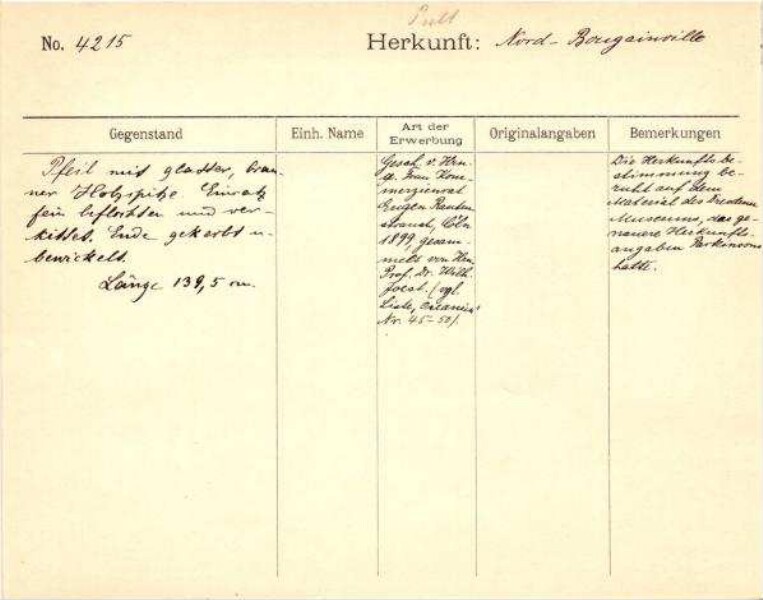 Pult
No. 4215
Herkunft: Nord-Bougainville
Gegenstand
Einh. Name
Art der Erwerbung
Originalangaben
Bemerkungen
Pfeil mit glatter, brau-
ner Holzspitze. Einsatz
fein beflochten und ver-
kittet. Ende gekerbt u.
bewickelt.
Länge 139,5 cm.
Gesch. v. Hrn.
u. Frau Kom-
merzienrat
Eugen Rauten
strauch, Cöln
1899, gesam-
melt von Hrn.
Prof. Dr. Wilh.
Joest. (vgl.
Liste, Oceanien
Nr. 45-50).
Die Herkunftsbe-
stimmung be-
ruht auf dem
Material des Dresdener
Museums, das ge-
nauere Herkunfts-
angaben Parkinsons
hatte.